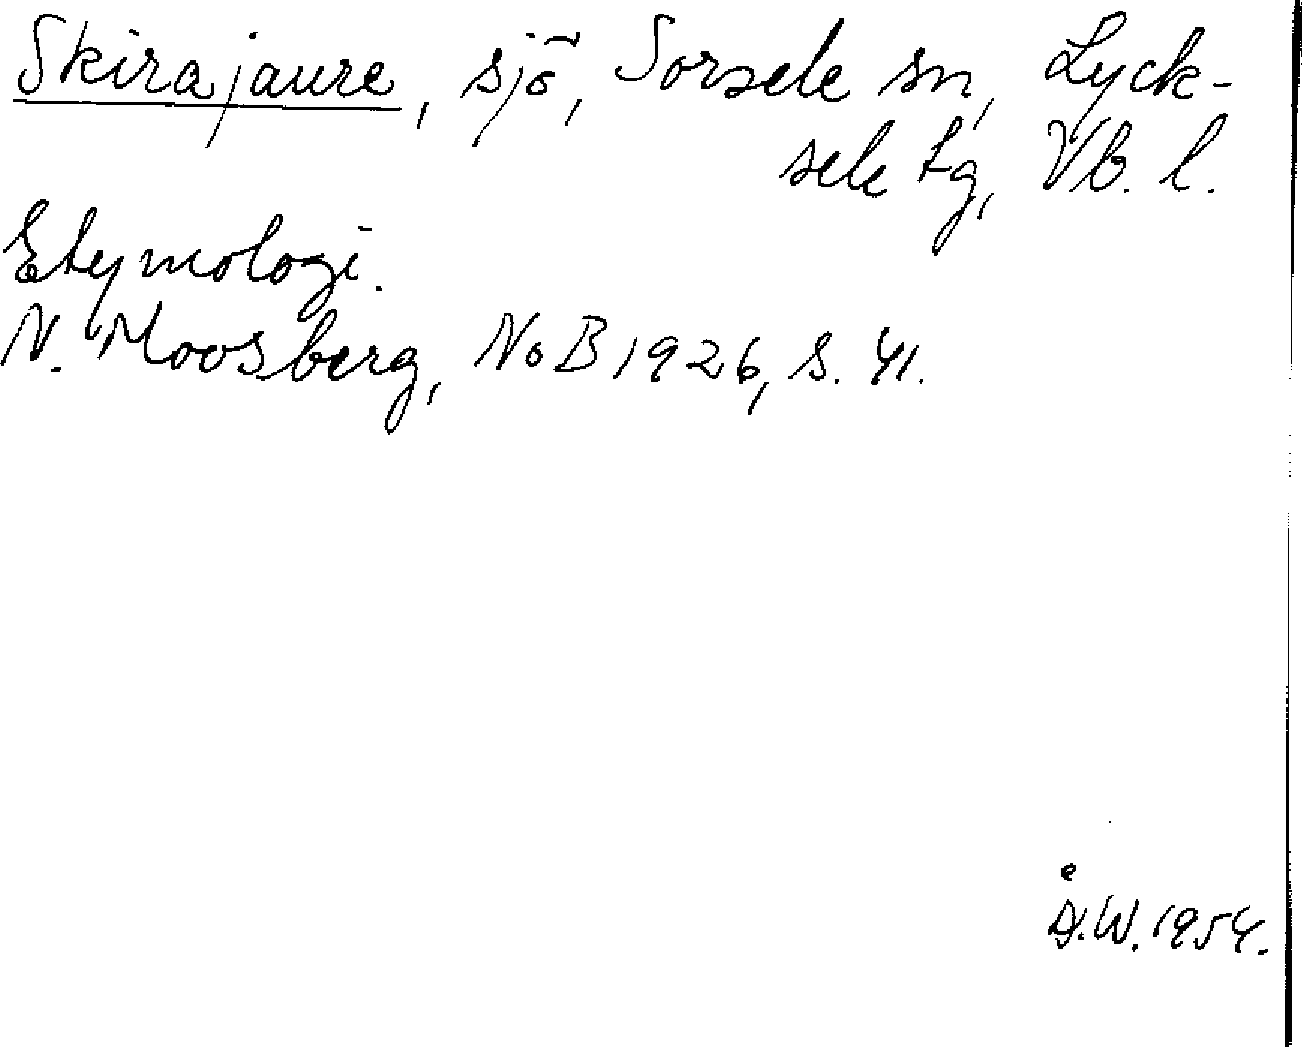 Skirajaure, sjö, Sorsele sn, Lyck-
sele tg, Vb. l.
Etymologi.
N. Moosberg, NoB 1926, s. 41.
Å.W. 1954.